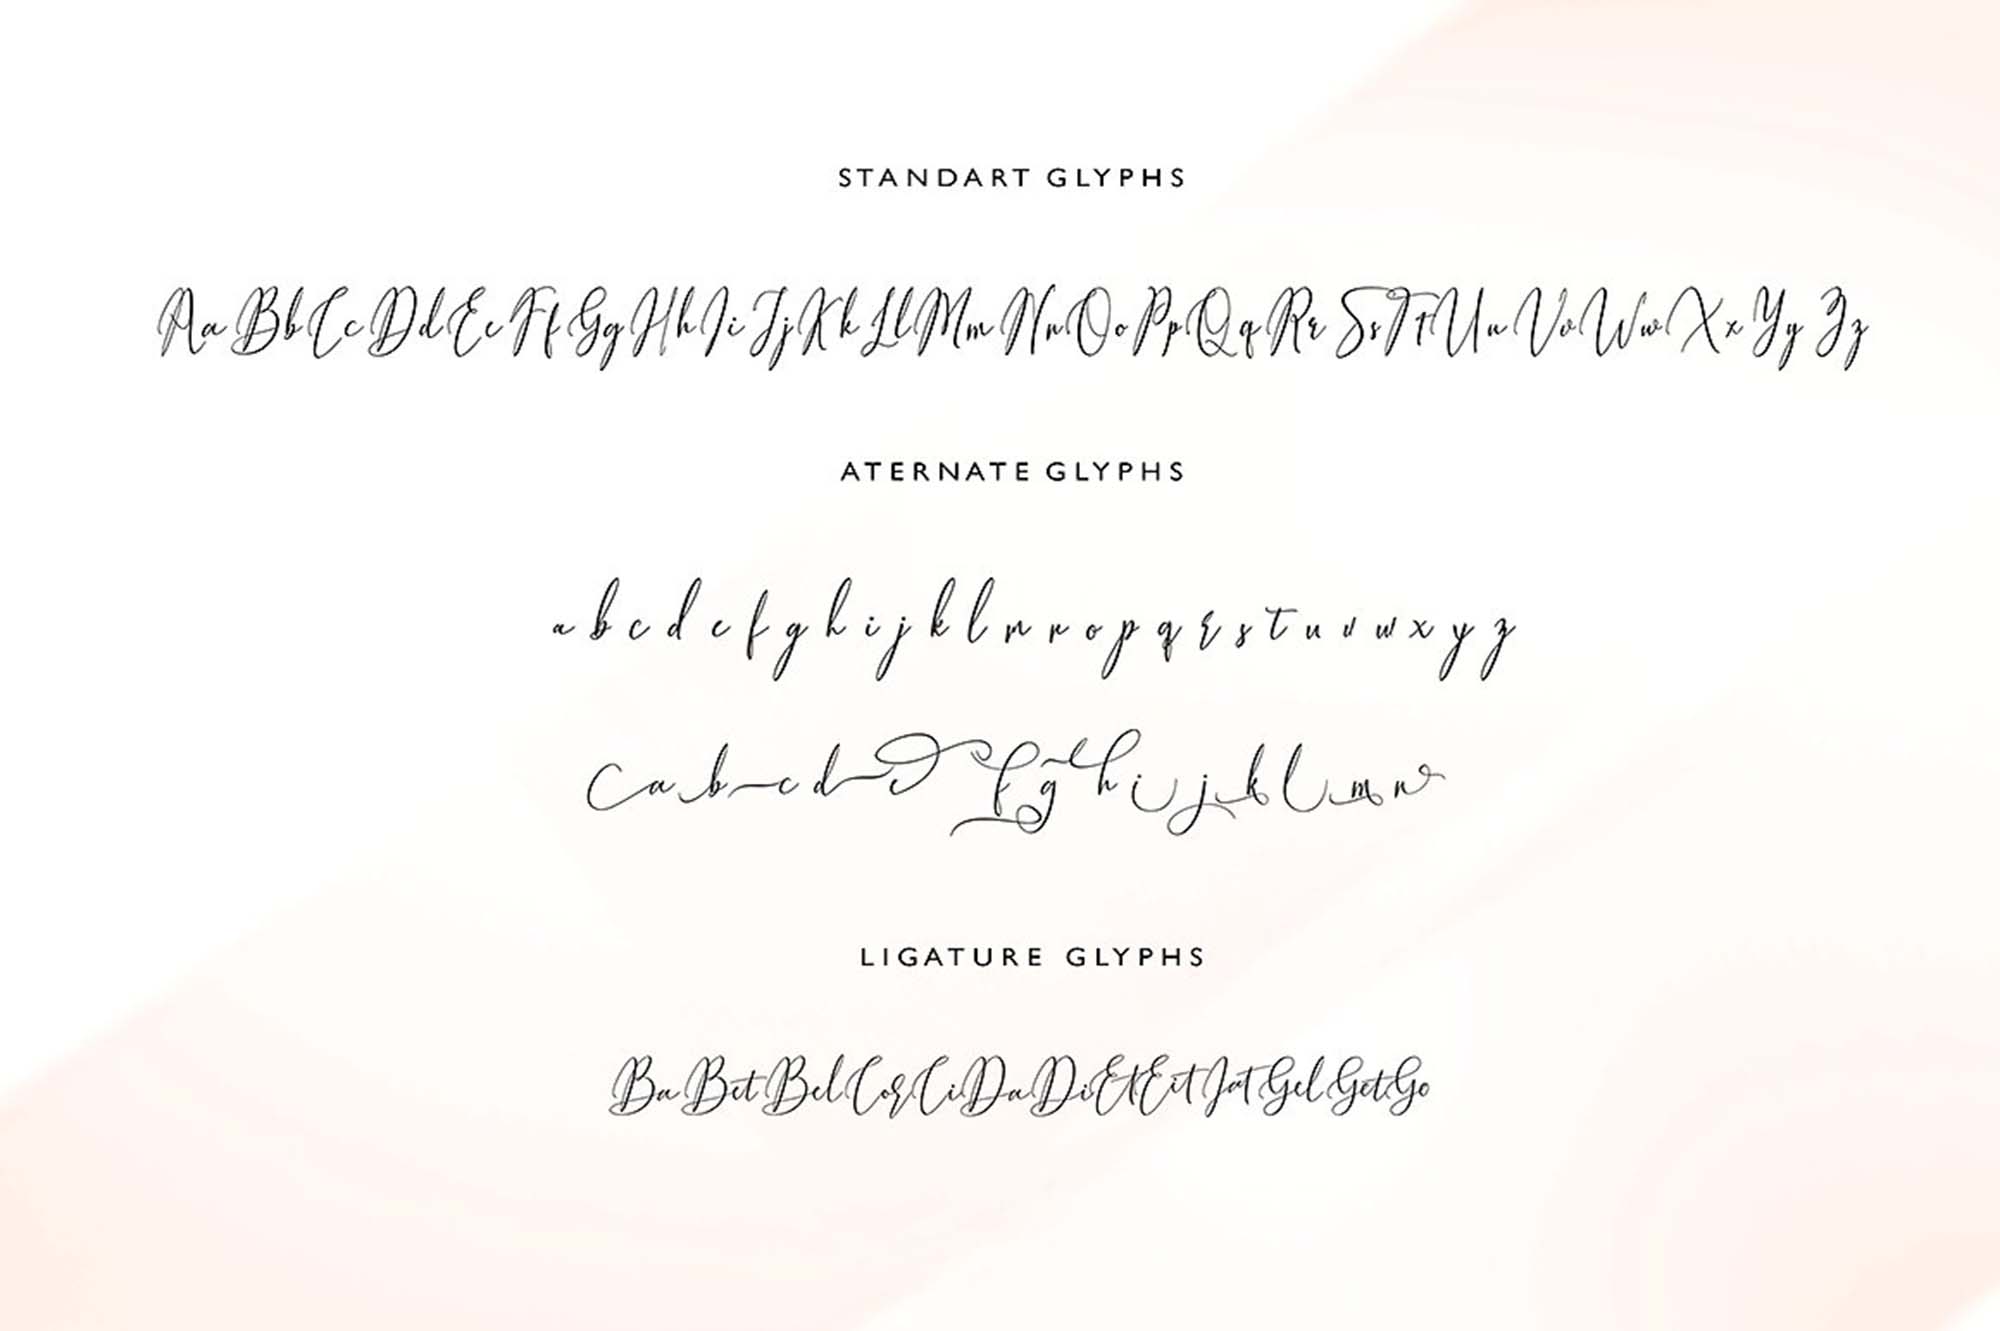 STANDART GLYPHS
Aa Bb Cc Dd Ee Ff Gg Hh Ii Jj Kk Ll Mm Nn Oo Pp Qq Rr Ss Tt Uu Vv Ww Xx Yy Zz
ATERNATE GLYPHS
a b c d e f g h i j k l m n o p q r s t u v w x y z
a b c d e f g h i j k l m n
LIGATURE GLYPHS
Ba Bet Bel Cor Ci Da Di Et Eit Jat Gel Get Go